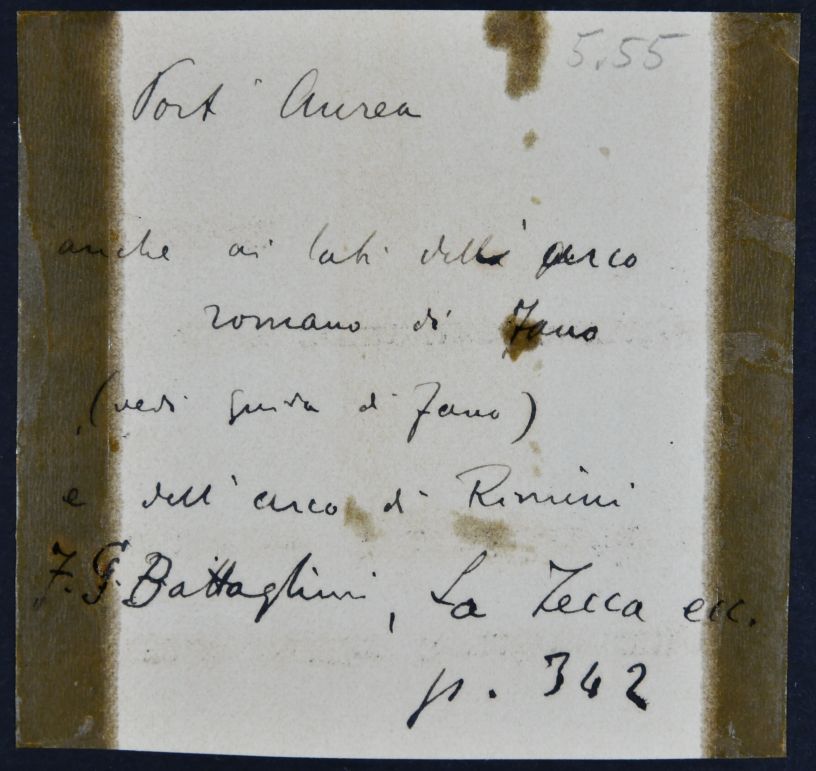 5.55
Port' Aurea
anche ai lati dell' arco
romano di Fano
(vedi guida di Fano)
e dell' arco di Rimini
F. G. Battaglini, La Zecca ecc.
p. 342